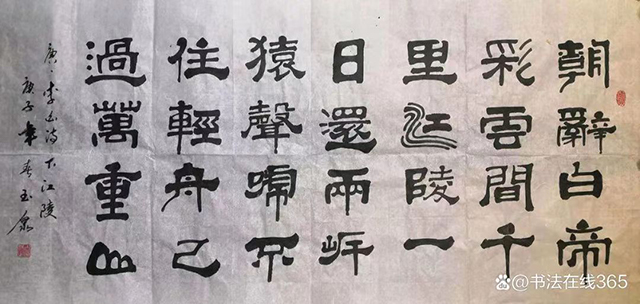 朝辭白帝
彩雲間千
里江陵一
日還兩岸
猿聲啼不
住輕舟已
過萬重山
唐、李白诗 下江陵
庚子年
@书法在线365